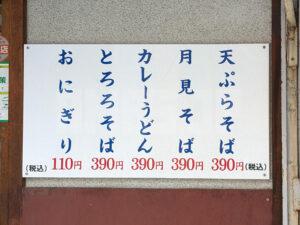 天ぷらそば
390円(税込)
月見そば
390円
カレーうどん
390円
とろろそば
390円
おにぎり
(税込)110円